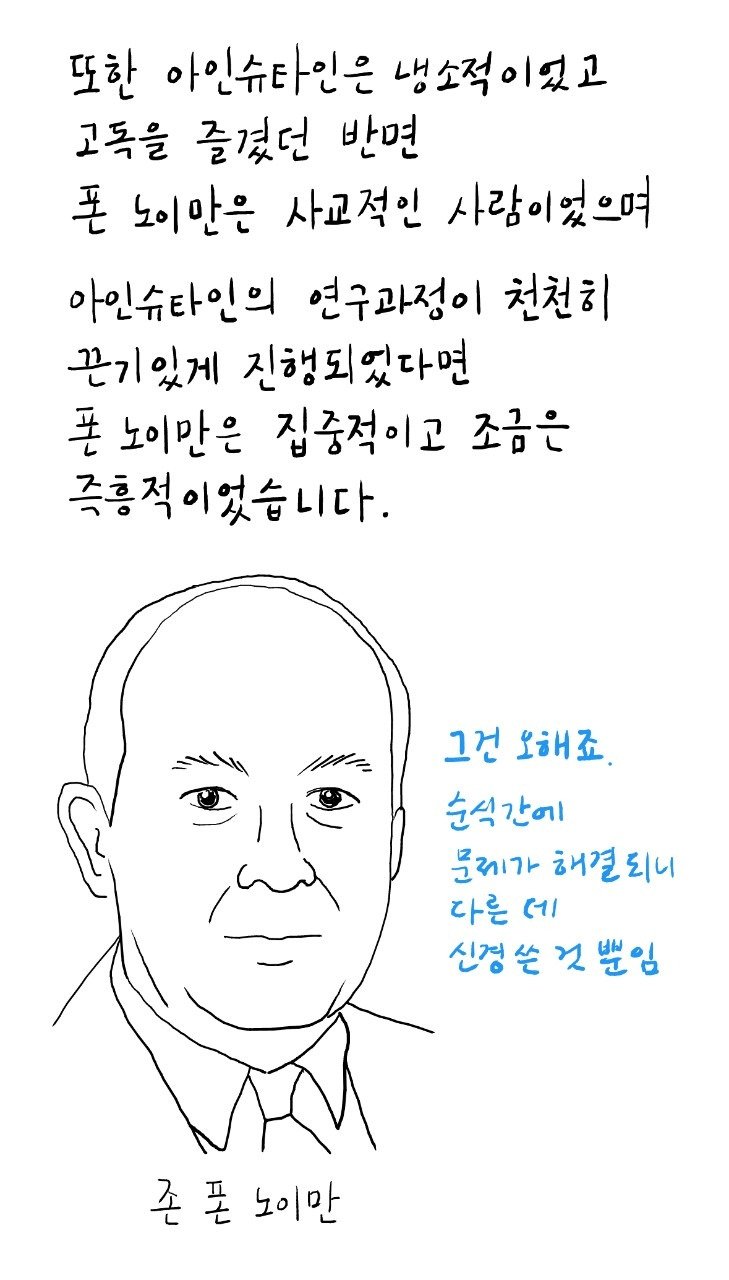 또한 아인슈타인은 냉소적이었고
고독을 즐겼던 반면
폰 노이만은 사교적인 사람이었으며
아인슈타인의 연구과정이 천천히
끈기있게 진행되었다면
폰 노이만은 집중적이고 조금은
즉흥적이었습니다.
그건 오해죠.
순식간에
문제가 해결되니
다른 데
신경쓴 것 뿐임
존 폰 노이만